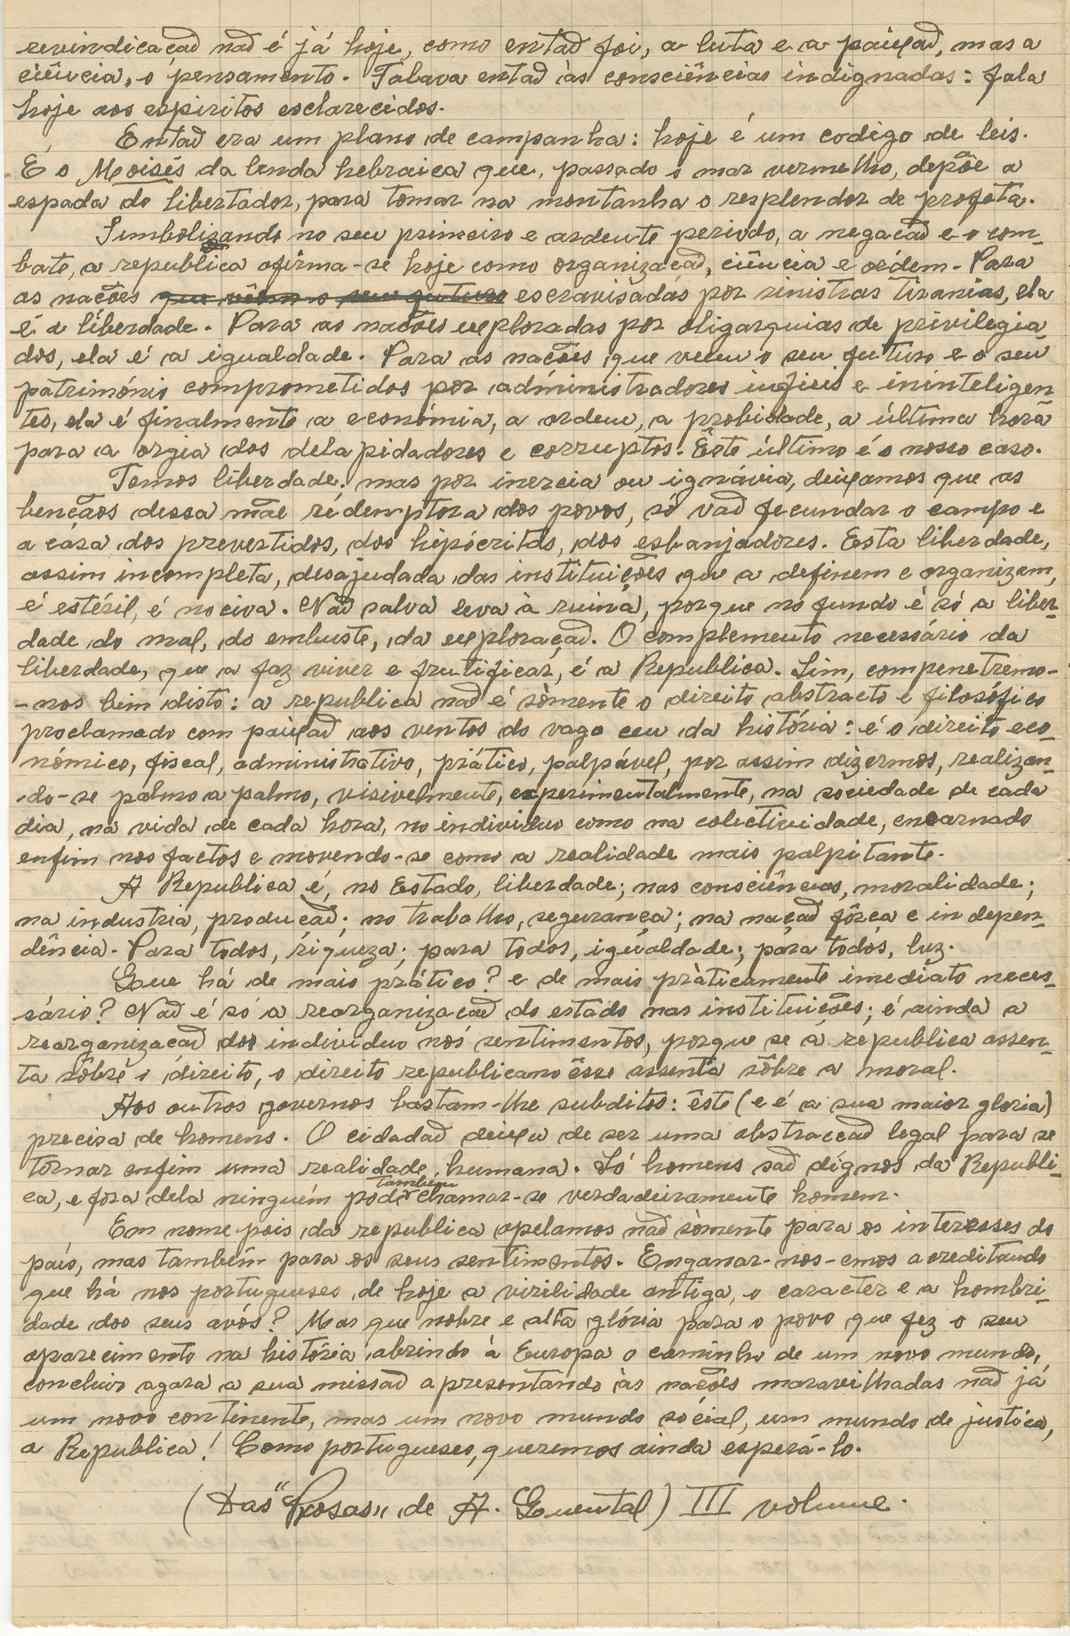 revindicação não é já hoje, como então foi, a luta e a paixão, mas a
ciência, o pensamento. Falava então às consciências indignadas: fala
hoje aos espiritos esclarecidos.
Então era um plano de campanha: hoje é um codigo de leis.
É o Moisés da lenda hebraica que, passado o mar vermelho, depõe a
espada do libertador, para tomar na montanha o resplendor de profeta.
Simbolisando no seu primeiro e ardente periodo, a negação e o com-
bate, a republica afirma-se hoje como organização, ciência e ordem. Para
as nações que vêem o seu futuro escravisadas por sinistras tiranias, ela
é a liberdade. Para as nações exploradas por oligarquias de privilegia
dos, ela é a igualdade. Para as nações que veem o seu futuro e o seu
património comprometidos por administradores infieis e ininteligen-
tes, ela é finalmente a economia, a ordem, a probidade, a última hora
para a orgia dos delapidadores e corruptos. Êste último é o nosso caso.
Temos liberdade, mas por inercia ou ignávia, deixamos que as
bençãos dessa mãe redemptora dos povos, só vão fecundar o campo e
a casa dos prevertidos, dos hipócritas, dos esbanjadores. Esta liberdade,
assim incompleta, desajudada das instituições que a definem e organizem,
é estéril, é nociva. Não salva leva à ruina, porque no fundo é só a liber-
dade do mal, do embuste, da exploração. O complemento necessário da
liberdade, que a faz viver e frutificar, é a Republica. Sim, compenetremo-
-nos bem disto: a republica não é sòmente o direito abstracto e filosófico
proclamado com paixão aos ventos do vago ceu da história: é o direito eco-
nómico, fiscal, administrativo, prático, palpável, por assim dizermos, realizan-
do-se palmo a palmo, visivelmente, experimentalmente, na sociedade de cada
dia, na vida de cada hora, no individuo como na colectividade, encarnado
enfim nos factos e movendo-se como a realidade mais palpitante.
A Republica é, no Estado, liberdade; nas consciências, moralidade;
na industria, produção; no trabalho, segurança; na nação fôrça e indepen-
dência. Para todos, riqueza; para todos, igualdade; para todos, luz.
Que há de mais prático? e de mais pràticamente imediato neces-
sário? Não é só a reorganização do estado nas instituições; é ainda a
reorganização dos individuo nos sentimentos, porque se a republica assen-
ta sôbre o direito, o direito republicano êsse assenta sôbre a moral.
Aos outros governos bastam-lhe subditos: êste (e é a sua maior gloria)
precisa de homens. O cidadão deixa de ser uma abstracção legal para se
tornar enfim uma realidade humana. Só homens são dignos da Republi-
ca, e fora dela ninguém pode também chamar-se verdadeiramente homem.
Em nome pois da republica apelamos não sòmente para os interesses do
país, mas também para os seus sentimentos. Enganar-nos-emos acreditando
que há nos portugueses de hoje a virilidade antiga, o caracter e a hombri-
dade dos seus avós? Mas que nobre e alta glória para o povo que fez o seu
aparecimento na história abrindo à Europa o caminho de um novo mundo,
concluir agora a sua missão apresentando às nações maravilhadas não já
um novo continente, mas um novo mundo social, um mundo de justiça,
a Republica! Como portugueses, queremos ainda esperá-lo.
(Das "Prosas" de A. Quental) III volume.